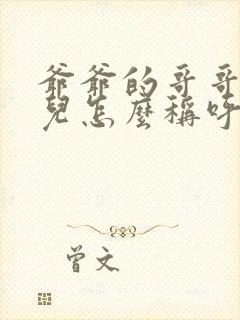 爺爺的哥哥
兒怎麼稱呼
曾文